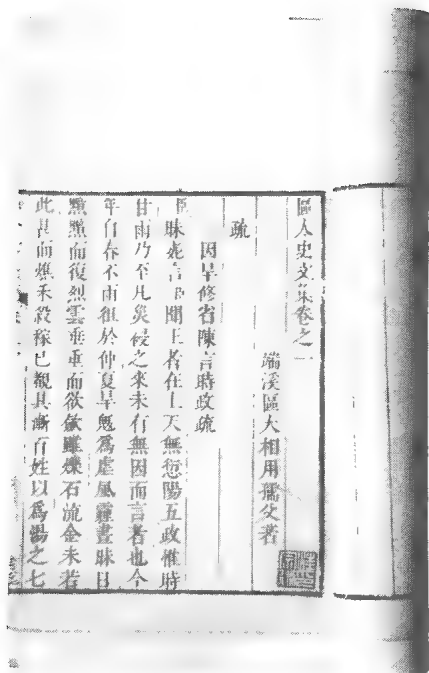 區太史文集卷之一
端溪區大相用孺父著
疏
因旱修省陳言時政疏
臣昧死言臣聞王者在上天無愆陽五政惟時
甘雨乃至凡災祲之來未有無因而言者也今
年自春不雨徂於仲夏旱魃為虐風霾晝昧日
黯黯而復烈雲垂垂而欲歛雖爍石流金未若
此甚而燋禾殺稼已覩其漸百姓以為湯之七